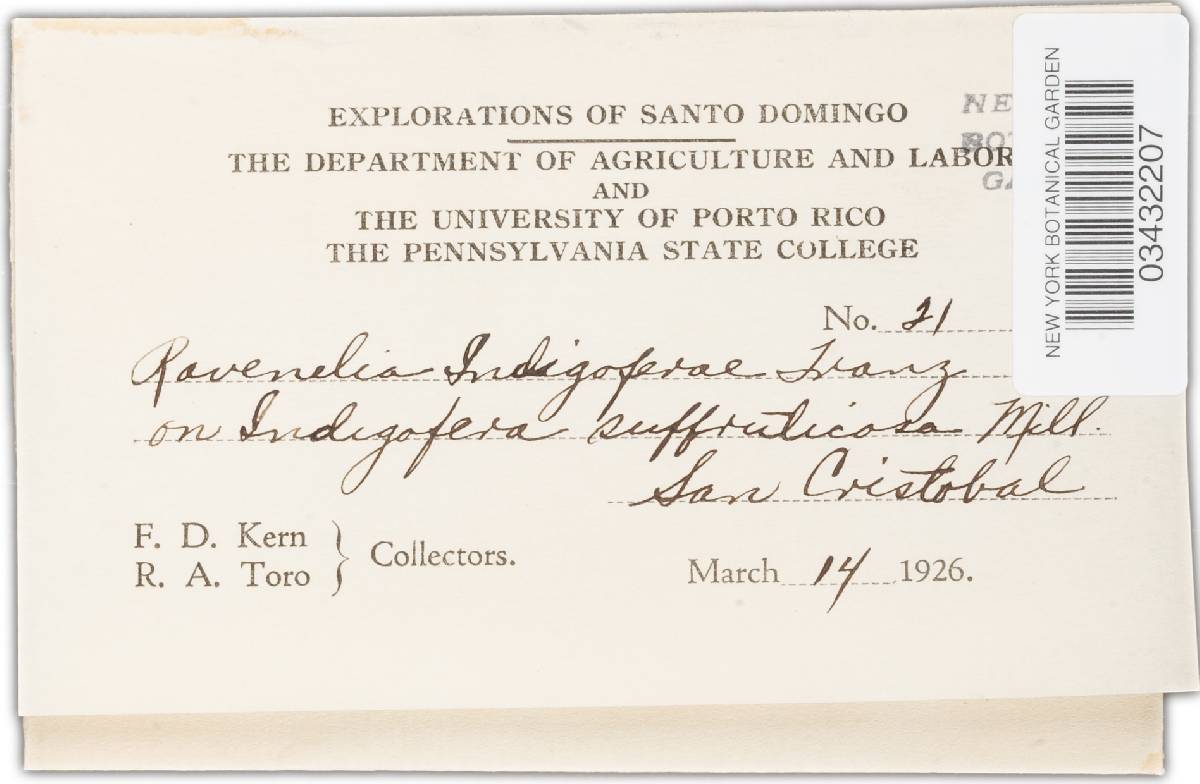 EXPLORATIONS OF SANTO DOMINGO
THE DEPARTMENT OF AGRICULTURE AND LABOR
AND
THE UNIVERSITY OF PORTO RICO
THE PENNSYLVANIA STATE COLLEGE
No. 21
Ravenelia Indigoferae Tranz
on Indigofera suffruticosa Mill.
San Cristobal
F. D. Kern
R. A. Toro
Collectors.
March 14 1926.
NEW YORK BOTANICAL GARDEN
03432207